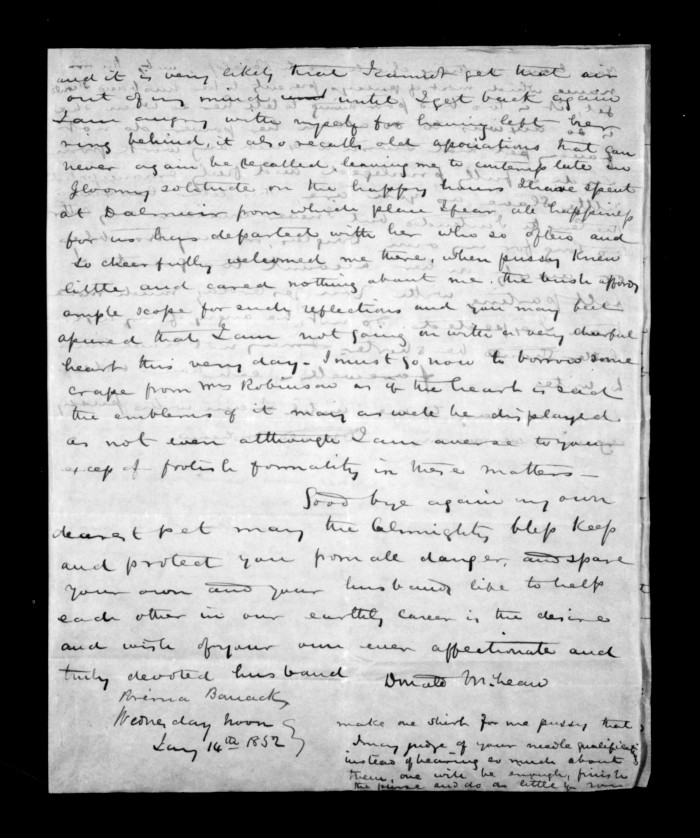 and it is very likely that I cannot get that air
out of my mind until I get back again
I am angry with myself for having left her
ring behind, it also recalls old associations that can
never again be recalled, leaving me to contemplate in
gloomy solitude on the happy hours I have spent
at Dalmuir from which place I fear all happiness
for us has departed with her who so often and
so cheerfully welcomed me there, when pussy knew
little and cared nothing about me. the bush affords
ample scope for such reflections and you may feel
assured that I am not going on with a very cheerful
heart this very day - I must go now to borrow some
crape from Mrs Robinson as if the heart is sad
the emblems of it may as well be displayed
as not even although I am averse to
of foolish formality in these matters -
Good bye again my own
dearest pet may the Almighty bless keep
and protect you from all danger, and spare
your own and your husbands life to help
each other in our earthly career is the desire
and wish of your own ever affectionate and
truly devoted husband Donald McLean
Barrack
Wednesday noon
Jany 14th 1852
make one shirt for me pussy that
I may judge of your needle qualifications
instead of hearing so much about
them, one will be enough, finish
the purse and do as little you can